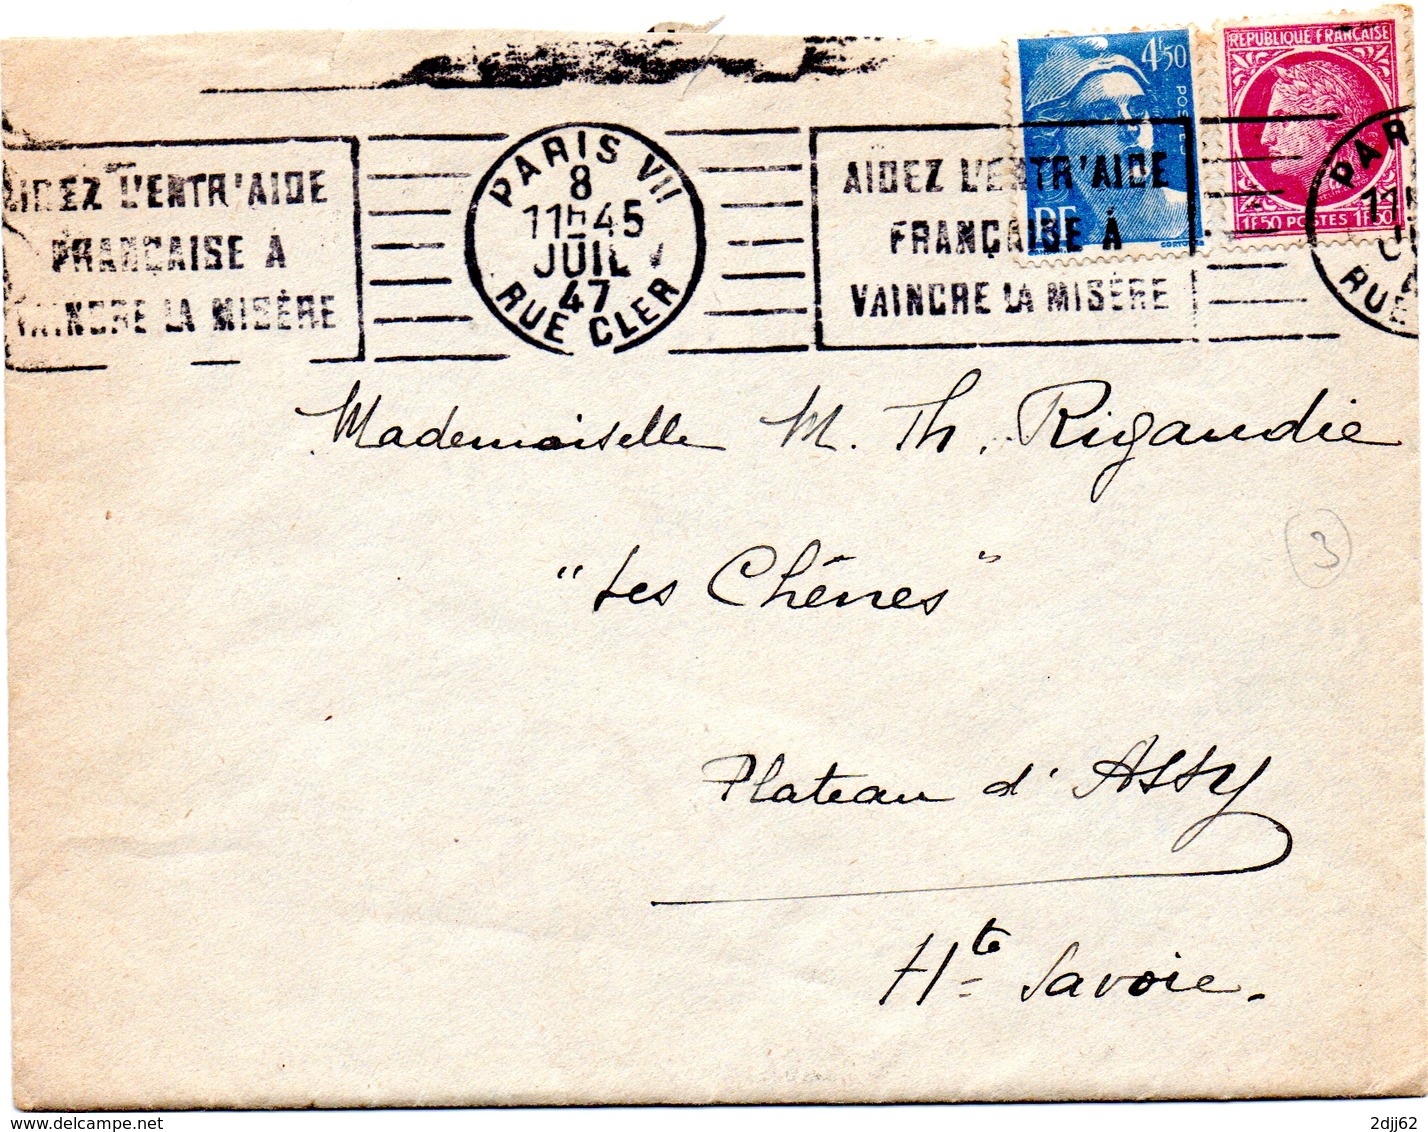 4F50
POSTES
RF
RÉPUBLIQUE FRANÇAISE
1F50 POSTES 1F50
AIDEZ L'ENTR'AIDE
FRANÇAISE À
VAINCRE LA MISÈRE
PARIS VII
8
11H45
JUIL
47
RUE CLER
AIDEZ L'ENTR'AIDE
FRANÇAISE À
VAINCRE LA MISÈRE
PAR
11
RUE
Mademoiselle M. Th. Rigaudie
"Les Chênes"
3
Plateau d'Assy
Hte Savoie.
www.delcampe.net
2djj62